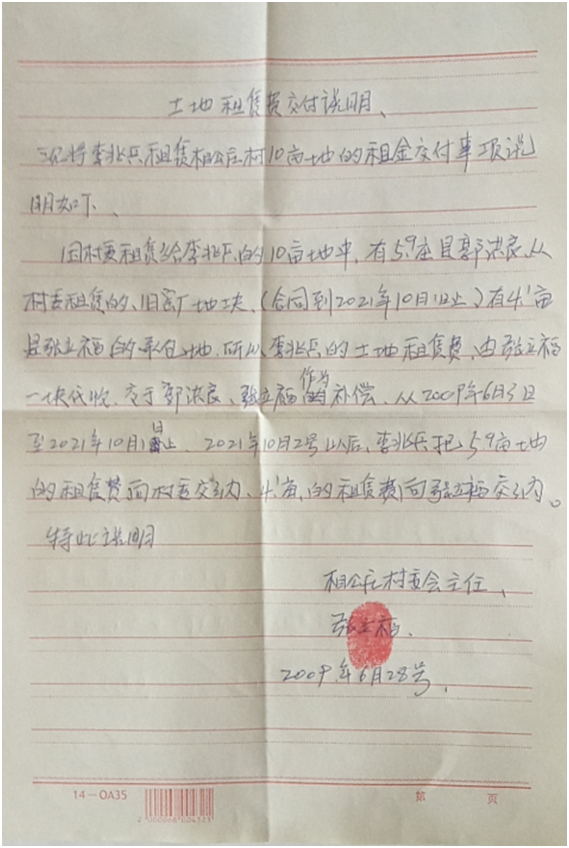 土地租赁费交付说明、
现将李兆兵租赁相公庄村10亩土地的租金交付事项说
明如下、
因村委租赁给李兆兵的10亩地中,有5.9亩是郭洪良从
村委租赁的、旧窑厂地块、(合同到2021年10月1日止)有4.1亩
是张立福的承包地.所以李兆兵的土地租赁费,由张立福
一块代收、交于郭洪良、张立福作为补偿、从2009年6月3日
至2021年10月1日止、2021年10月2号以后、李兆兵把5.9亩土地
的租赁费向村委交纳、4.1亩,的租赁费向张立福交纳。
特此说明
相公庄村委会主任、
张立福、
2009年6月28号、
14—OA35
第 页